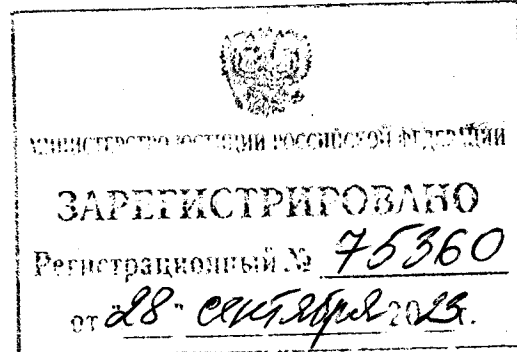 МИНИСТЕРСТВО ЮСТИЦИИ РОССИЙСКОЙ ФЕДЕРАЦИИ
ЗАРЕГИСТРИРОВАНО
Регистрационный № 75360
от "28" сентября 2023.